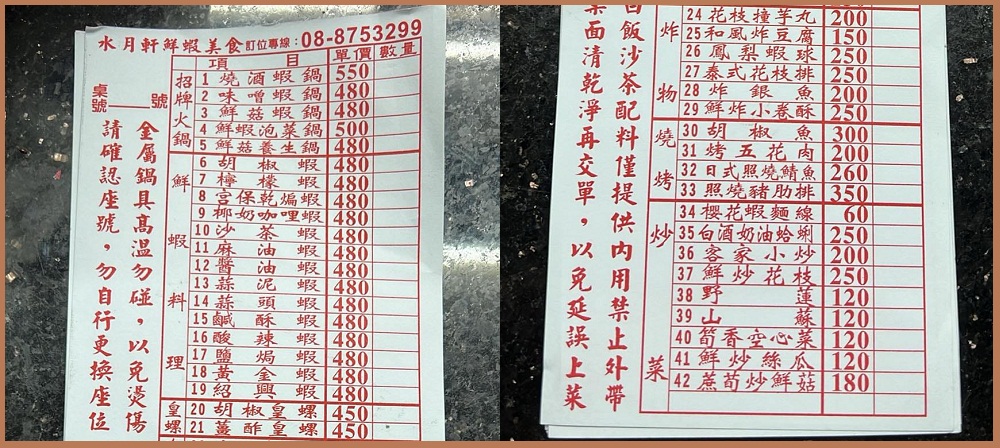 水月軒鮮蝦美食訂位專線：08-8753299
桌號____號
金屬鍋具高溫勿碰，以免燙傷
請確認座號，勿自行更換座位
項目 單價 數量
招牌火鍋
1 燒酒蝦鍋 550
2 味噌蝦鍋 480
3 鮮菇蝦鍋 480
4 鮮蝦泡菜鍋 500
5 鮮菇養生鍋 480
鮮蝦料理
6 胡椒蝦 480
7 檸檬蝦 480
8 宮保乾煸蝦 480
9 椰奶咖哩蝦 480
10 沙茶蝦 480
11 麻油蝦 480
12 醬油蝦 480
13 蒜泥蝦 480
14 蒜頭蝦 480
15 鹹酥蝦 480
16 酸辣蝦 480
17 鹽焗蝦 480
18 黃金蝦 480
19 紹興蝦 480
皇螺
20 胡椒皇螺 450
21 薑酢皇螺 450
白飯沙茶配料僅提供內用禁止外帶
桌面清乾淨再交單，以免延誤上菜
炸物
24 花枝撞芋丸 200
25 和風炸豆腐 150
26 鳳梨蝦球 250
27 泰式花枝排 250
28 炸銀魚 200
29 鮮炸小卷酥 250
燒烤
30 胡椒魚 300
31 烤五花肉 200
32 日式照燒鯖魚 260
33 照燒豬肋排 350
炒菜
34 櫻花蝦麵線 60
35 白酒奶油蛤蜊 250
36 客家小炒 200
37 鮮炒花枝 250
38 野蓮 120
39 山蘇 120
40 筍香空心菜 120
41 鮮炒絲瓜 120
42 蔗筍炒鮮菇 180